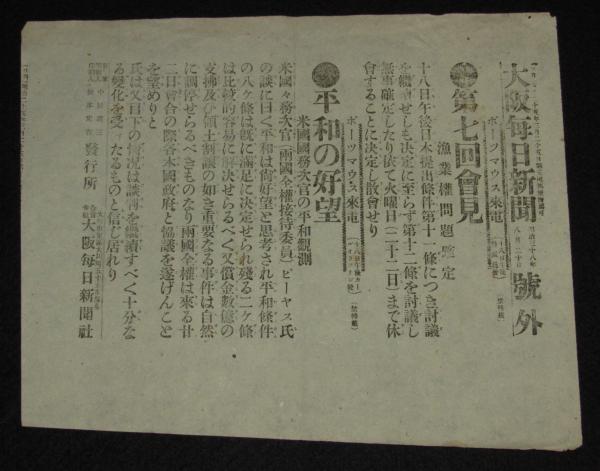 大阪毎日新聞 號外
明治三十八年
八月二十日
第七回會見
ポーツマウス來電
漁業權問題確定
十八日午後日本提出條件第十一條につき討議
を繼續せしも決定に至らず第十二條を討議し
無事確定したり依て火曜日(二十二日)まで休
會することに決定し散會せり
平和の好望
ポーツマウス來電
米國國務次官の平和觀測
米國々務次官(兩國全權接待委員)ピーヤス氏
の談に曰く平和は尚好望と思考され平和條件
の八ケ條は既に滿足に決定せられ殘る二ケ條
は比較的容易に解決せらるべく又償金數億の
支拂及び領土割讓の如き重要なる事件は自然
に調停せらるべきものなり兩國全權は來る廿
二日會合の際各本國政府と協議を遂げんこと
を望めりと
氏は又目下の情况は談判を繼續すべく十分な
る變化を受ゝたるものと信じ居れり
發行所
大阪毎日新聞社